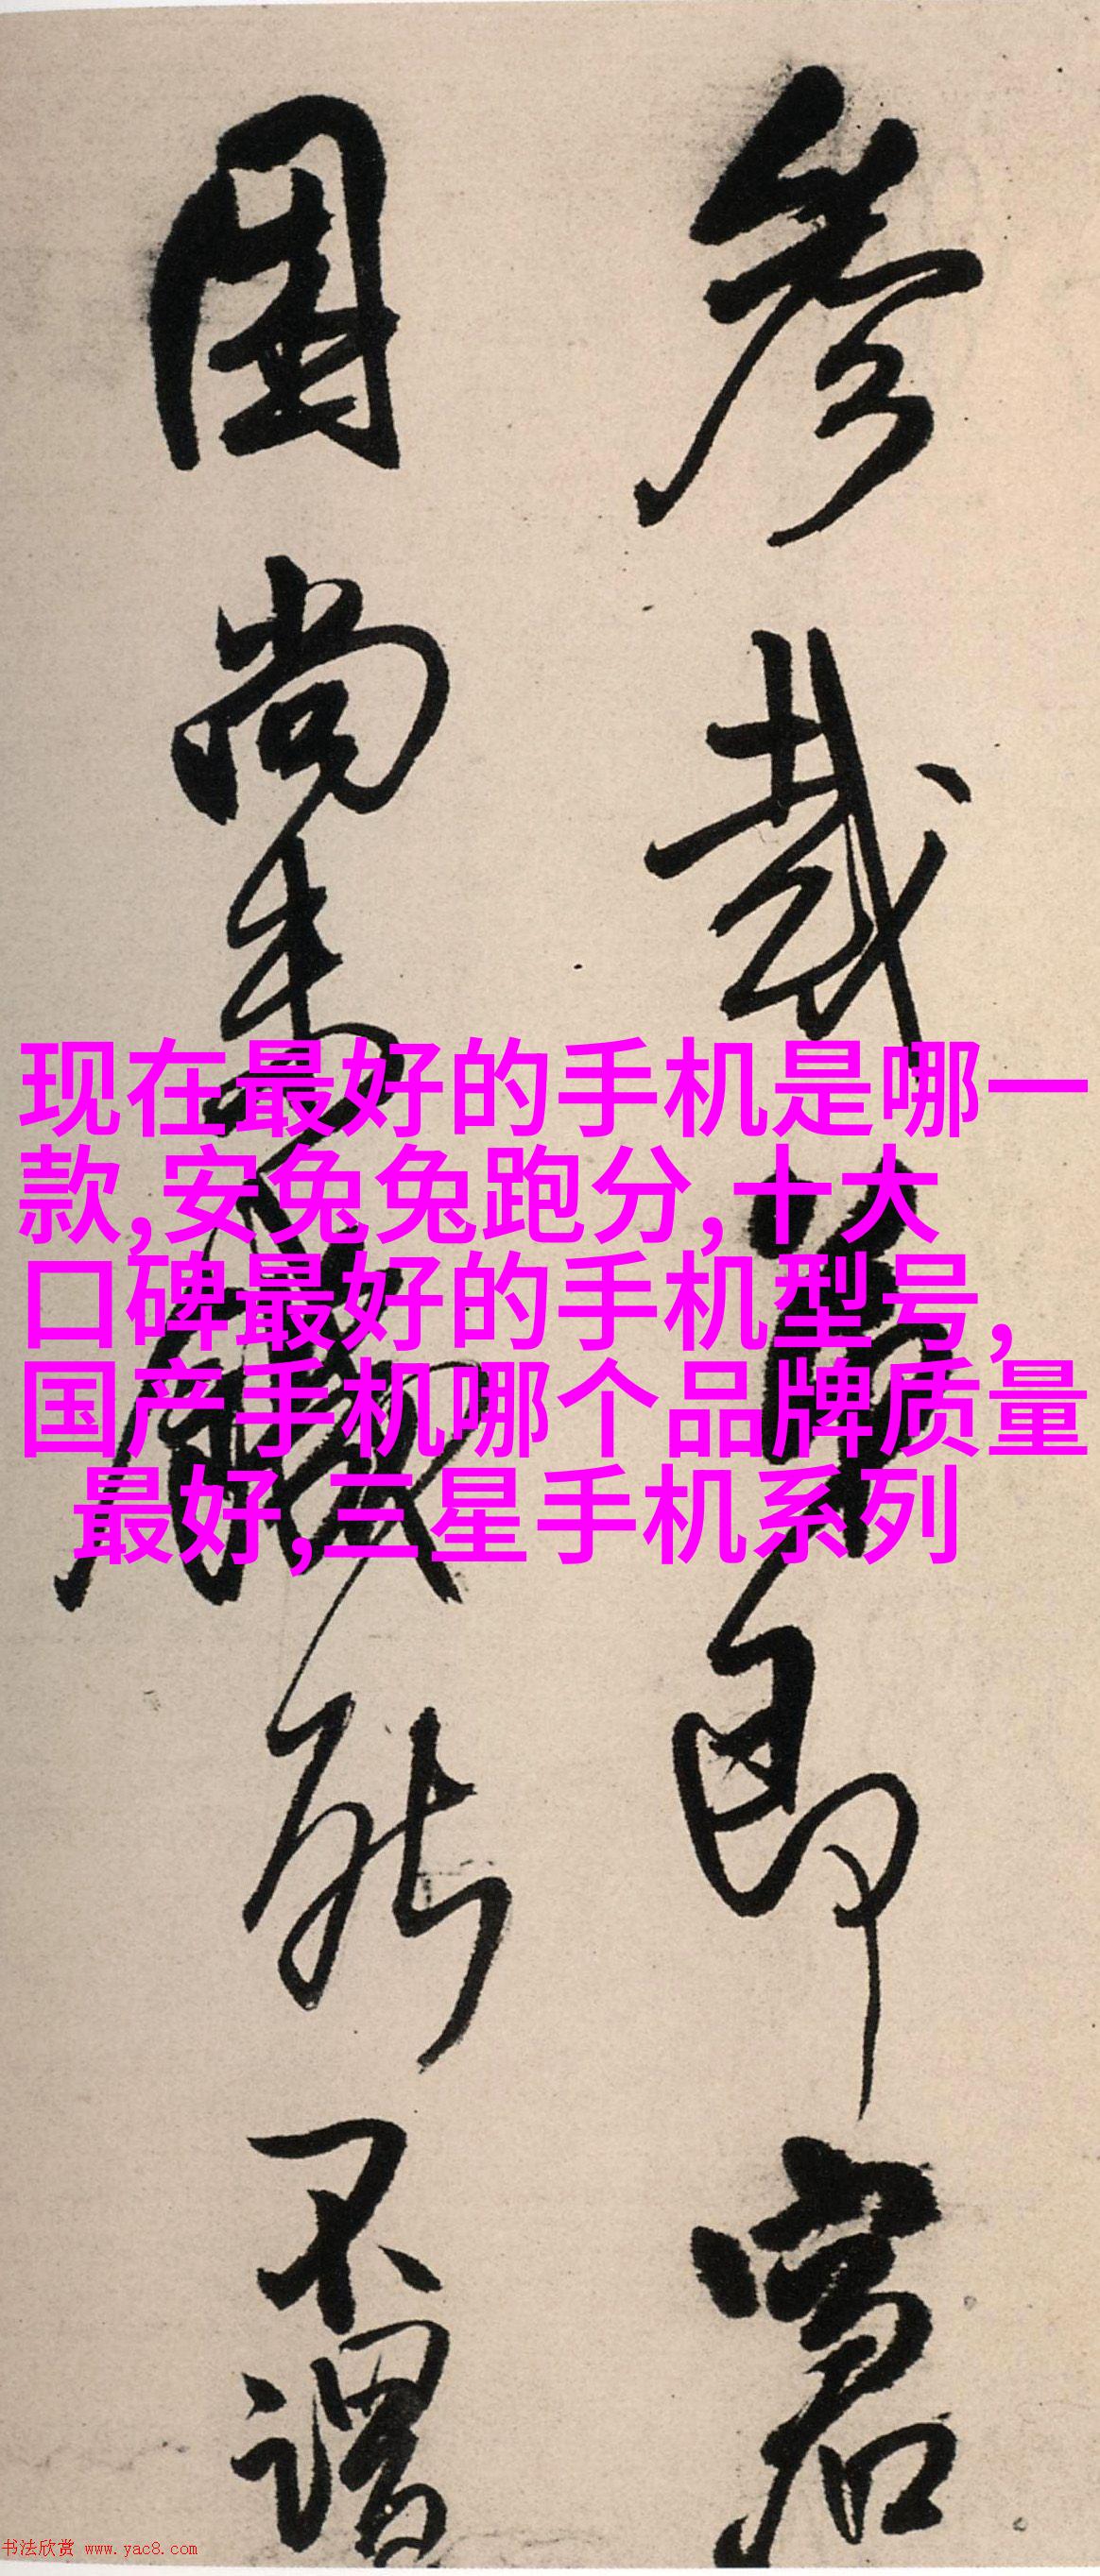 参哉草即宫
固尚书 能不谓
现在最好的手机是哪一
款,安兔兔跑分,十大
口碑最好的手机型号,
国产手机哪个品牌质量
最好,三星手机系列
书法欣赏 www.yac8.com